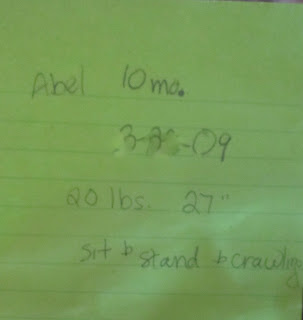 Abel 10 mo.
3-2 -09
20 lbs. 27"
sit b stand b crawling